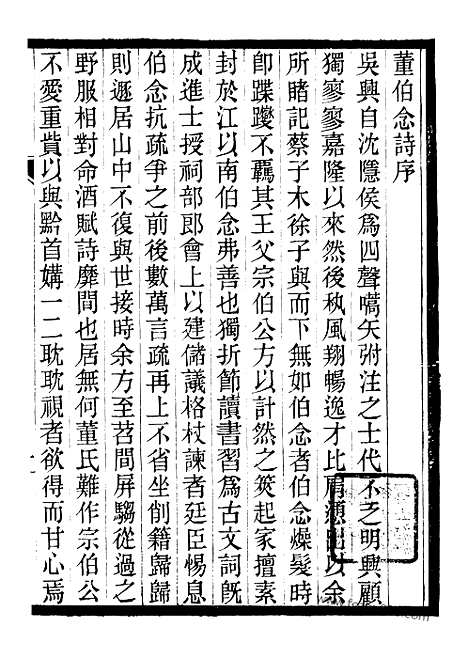 董伯念詩序
吳興自沈隱侯爲四聲嚆矢弣注之士代不乏明興顧
獨寥寥嘉隆以來然後秇風翔暢逸才比肩遞出以余
所睹記蔡子木徐子與而下無如伯念者伯念燥髮時
卽蹀躞不羈其王父宗伯公方以計然之筴起家擅素
封於江以南伯念弗善也獨折節讀書習爲古文詞旣
成進士授祠部郎會上以建儲議格杖諫者廷臣惕息
伯念抗疏爭之前後數萬言疏再上不省坐削籍歸歸
則遯居山中不復與世接時余方至苕間屏騶從過之
野服相對命酒賦詩靡間也居無何董氏難作宗伯公
不愛重貲以與黔首媾一二耽耽視者欲得而甘心焉